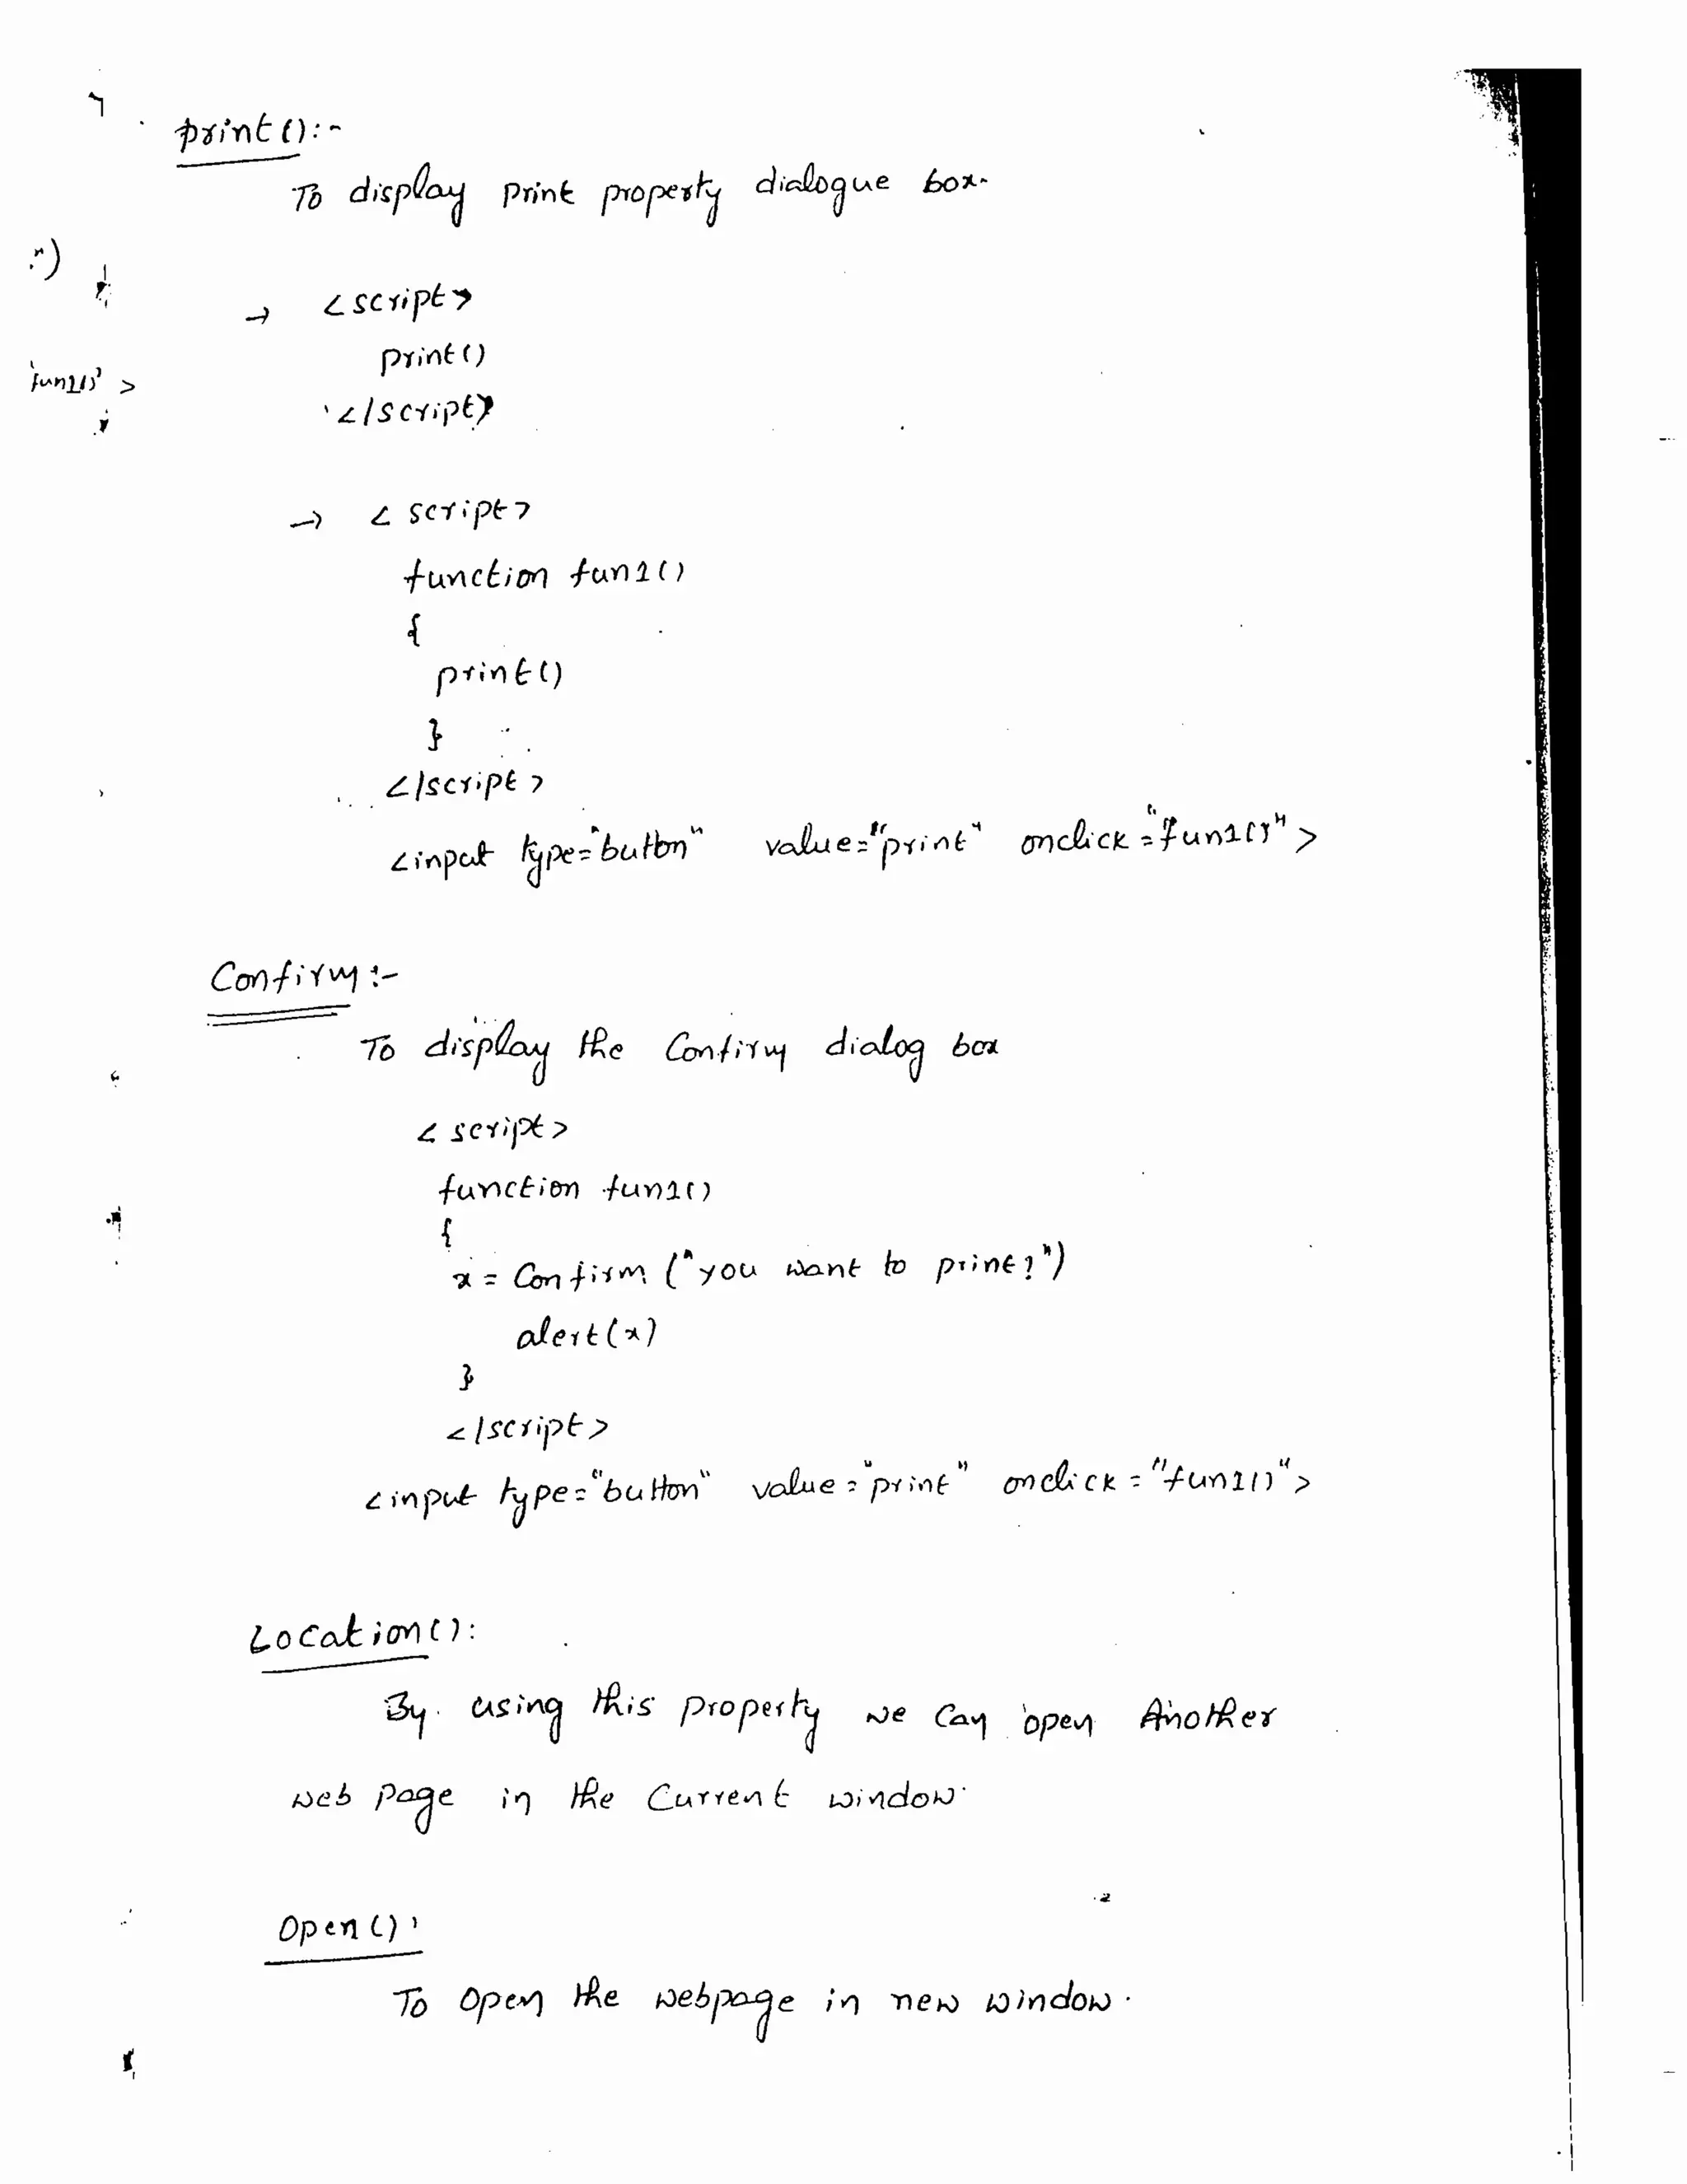 print():-
To display print property dialogue box.
")
→ <script>
print()
'fun1()' >
</script>
→ < script>
function fun1()
{
print()
}
</script>
<input type="button" value="print" onclick="fun1()">
Confirm:-
To display the Confirm dialog box
< script>
function fun1()
{
x = Confirm ("you want to print?")
alert(x)
}
</script>
<input type="button" value="print" onclick="fun1()">
Location():
By using this property we Can open Another
web page in the Current window.
Open():
To Open the webpage in new window.